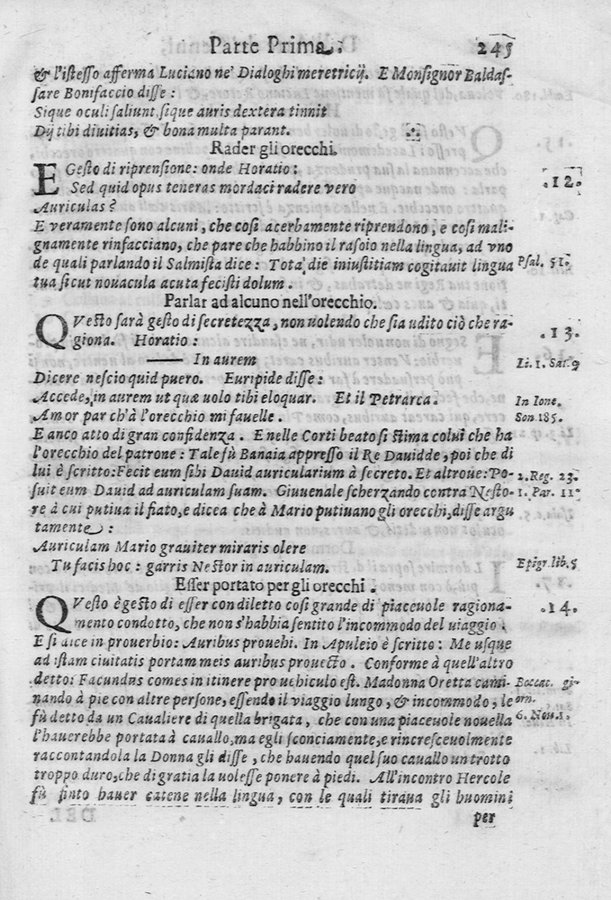 Parte Prima. 245
& l'istesso afferma Luciano ne' Dialoghi meretricij. E Monsignor Baldas-
sare Bonifaccio disse :
Sique oculi saliunt, sique auris dextera tinnit
Dij tibi divitias, & bona multa parant.
Rader gli orecchi.
E Gesto di riprensione: onde Horatio: .12.
Sed quid opus teneras mordaci radere vero
Auriculas ?
E veramente sono alcuni, che così acerbamente riprendono, e così mali-
gnamente rinfacciano, che pare che habbino il rasoio nella lingua, ad vno
de quali parlando il Salmista dice : Tota die iniustitiam cogitauit lingua Psal. 51.
tua sicut nouacula acuta fecisti dolum.
Parlar ad alcuno nell'orecchio.
QVesto sarà gesto di secretezza, non uolendo che sia udito ciò che ra- .13.
giona. Horatio :
—— In aurem Li. 1. Sat. 9
Dicere nescio quid puero. Euripide disse :
Accede, in aurem ut quæ uolo tibi eloquar. Et il Petrarca. In Ione.
Amor par ch'à l'orecchio mi fauelle. Son 185.
E anco atto di gran confidenza. E nelle Corti beato si stima colui che ha
l'orecchio del patrone : Tale fù Banaia appresso il Re Dauidde, poi che di
lui è scritto: Fecit eum sibi Dauid auricularium à secreto. Et altroue: Po- 2. Reg. 23.
suit eum Dauid ad auriculam suam. Giuuenale scherzando contra Nesto- 1. Par. 11
re à cui putiua il fiato, e dicea che à Mario putiuano gli orecchi, disse argu
tamente :
Auriculam Mario grauiter miraris olere
Tu facis hoc : garris Nestor in auriculam. Epigr. lib. 5
Esser portato per gli orecchi.
QVesto è gesto di esser con diletto così grande di piaceuole ragiona- .14.
mento condotto, che non s'habbia sentito l'incommodo del uiaggio ;
E si dice in prouerbio: Auribus prouehi. In Apuleio è scritto : Me usque
ad istam ciuitatis portam meis auribus prouecto. Conforme à quell'altro
detto: Facundus comes in itinere pro uehiculo est. Madonna Oretta cami- Boccac. gi-
nando à pie con altre persone, essendo il viaggio lungo, & incommodo, le orn.
fù detto da un Caualiere di quella brigata, che con una piaceuole nouella 6. Nou. 1.
l'hauerebbe portata à cauallo, ma egli sconciamente, e rincresceuolmente
raccontandola la Donna gli disse, che hauendo quel suo cauallo un trotto
troppo duro, che di gratia la uolesse ponere à piedi. All'incontro Hercole
fù finto hauer catene nella lingua, con le quali tiraua gli huomini
per